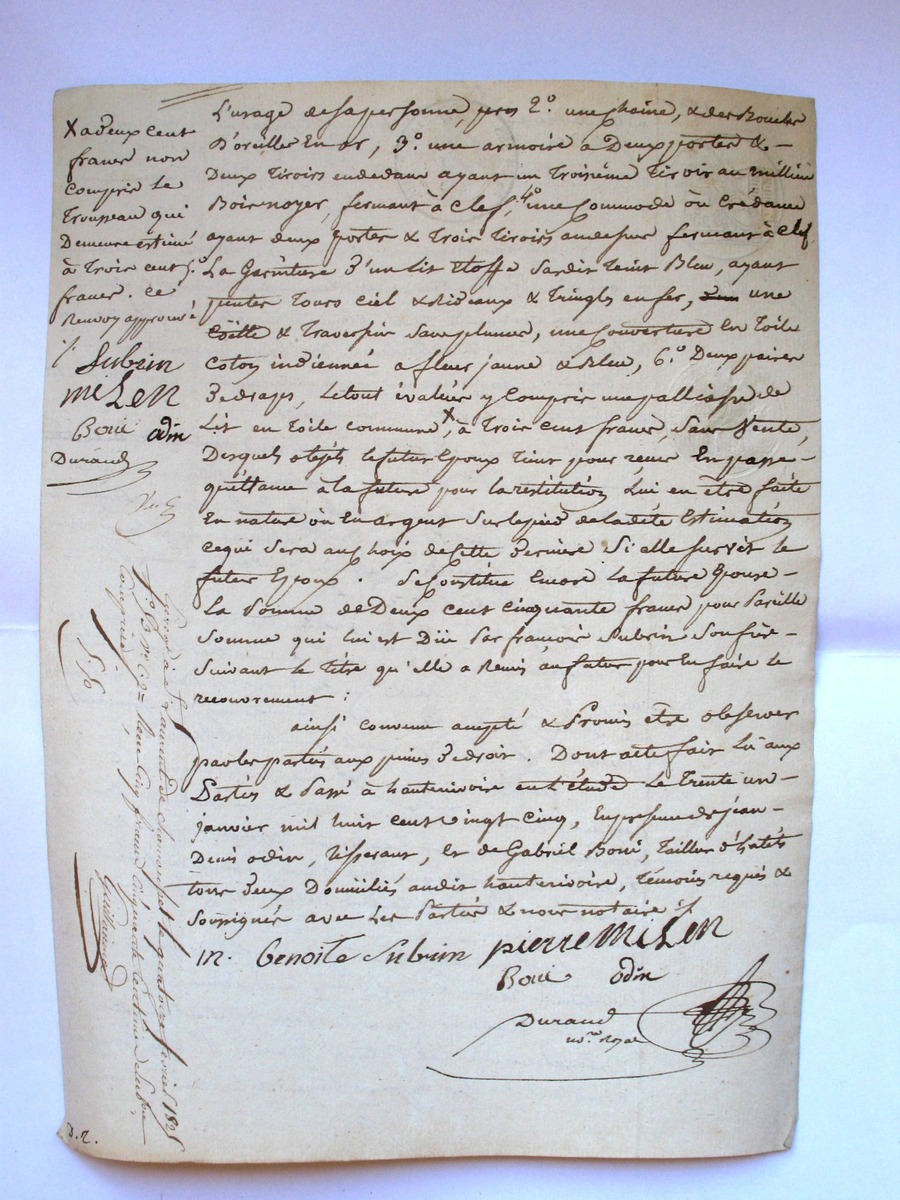 X à deux cent
francs non
compris le
Troupeau qui
Demeure estimé
à Trois cent
francs. ce
Renvoy approuvé
Subrin
miLen
Boni odin
Durand
L'usage de sa personne, 2.° une chaine, & des Boucles
D'oreilles En or, 3.° une armoire à Deux portes &
Deux Tiroirs endedans ayant un Troisième Tiroir au millieu
Bois noyer, fermant à clef, 4.° une Commode ou Crédance
ayant deux portes & Trois Tiroirs audessus fermant à clef
La Garniture d'un Lit Etoffe Cardit teint Bleu, ayant
pentes Tours ciel & Rideaux & Tringles en fer, une
Coëtte & Traversin sans plumes, une Couverture En Toile
Coton indiennée à fleurs jaune & Bleu, 6.° Deux paires
de draps, Le tout évalués y Compris une palliasse de
Lit en Toile commune X, à Trois cent francs, Sans Vente,
Desquels objets le futur Epoux Tient pour reçus En passe
quittance à la future pour la restitution Lui en être faite
En nature ou En argent Sur le pied de la dite Estimation
ce qui Sera au choix de Cette dernière Si elle Survit le
futur Epoux. Se Constitue Encore La future Epouse
La Somme de Deux cent Cinquante francs pour Pareille
Somme qui lui est Düe Par françois Subrin Son frère
Suivant le Titre qu'elle a Remis au futur pour En faire le
recouvrement :
ainsi convenu accepté & Promis être observer
par les parties aux peines de droit. Dont acte fait Lû aux
Parties & Passé à hauterivoire en l'étude Le Trente un
janvier mil huit cent vingt cinq, En présence de jean
Denis odin, Tisserant, Et de Gabriel Boni, Tailleur d'habits
tous deux Domiciliés audit hauterivoire, Témoins requis &
Soussignés avec Les Parties & nous notaire
m. Benoite Subrin pierre miLen
Boni odin
Durand
no.re Royal
Enregistré à St Laurent de chamousset le quatorze février 1825
f.° 13 Reçu Cinq francs Cinquante centimes
compris
D. r.